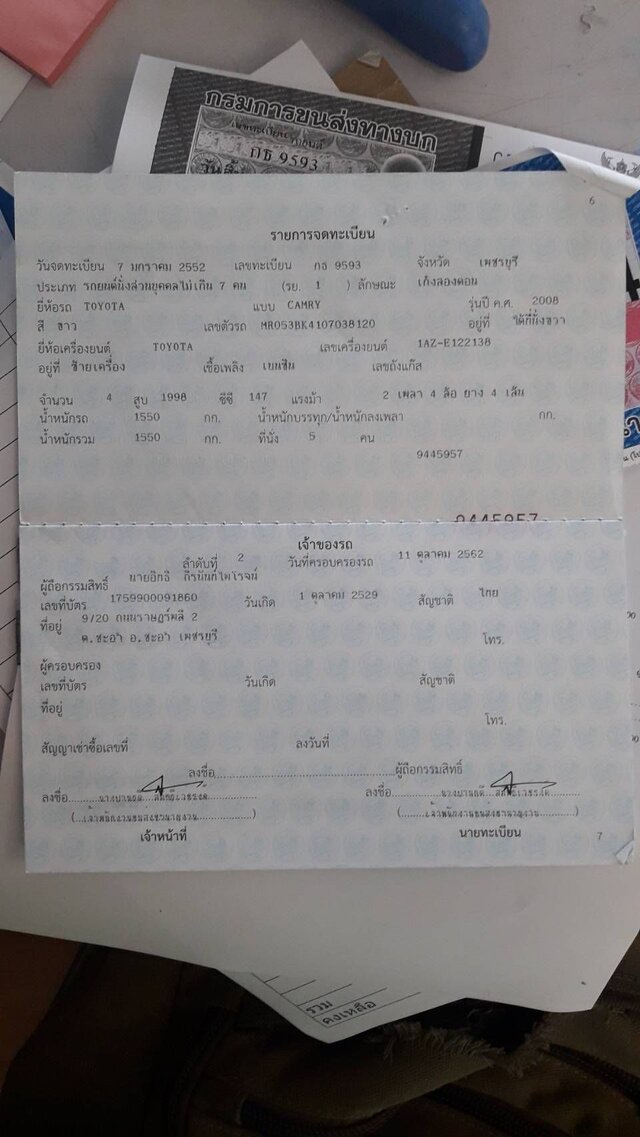 กรมการขนส่งทางบก
กธ 9593
6
รายการจดทะเบียน
วันจดทะเบียน 7 มกราคม 2552 เลขทะเบียน กธ 9593 จังหวัด เพชรบุรี
ประเภท รถยนต์นั่งส่วนบุคคลไม่เกิน 7 คน (รย. 1 ) ลักษณะ เก๋งสองตอน
ยี่ห้อรถ TOYOTA แบบ CAMRY รุ่นปี ค.ศ. 2008
สี ขาว เลขตัวรถ MR053BK4107038120 อยู่ที่ ใต้ที่นั่งขวา
ยี่ห้อเครื่องยนต์ TOYOTA เลขเครื่องยนต์ 1AZ-E122138
อยู่ที่ ซ้ายเครื่อง เชื้อเพลิง เบนซิน เลขถังแก๊ส
จำนวน 4 สูบ 1998 ซีซี 147 แรงม้า 2 เพลา 4 ล้อ ยาง 4 เส้น
น้ำหนักรถ 1550 กก. น้ำหนักบรรทุก/น้ำหนักลงเพลา กก.
น้ำหนักรวม 1550 กก. ที่นั่ง 5 คน
9445957
9445957
เจ้าของรถ
ลำดับที่ 2 วันที่ครอบครองรถ 11 ตุลาคม 2562
ผู้ถือกรรมสิทธิ์ นายอิทธิ กิรนันท์ไพโรจน์
เลขที่บัตร 1759900091860 วันเกิด 1 ตุลาคม 2529 สัญชาติ ไทย
ที่อยู่ 9/20 ถนนราษฎร์พลี 2
ต.ชะอำ อ.ชะอำ เพชรบุรี โทร.
ผู้ครอบครอง
เลขที่บัตร วันเกิด สัญชาติ
ที่อยู่
โทร.
สัญญาเช่าซื้อเลขที่ ลงวันที่
ลงชื่อ ผู้ถือกรรมสิทธิ์
ลงชื่อ ลงชื่อ
(เจ้าพนักงานขนส่งชำนาญงาน) (เจ้าพนักงานขนส่งชำนาญงาน)
เจ้าหน้าที่ นายทะเบียน 7
รวม
คงเหลือ